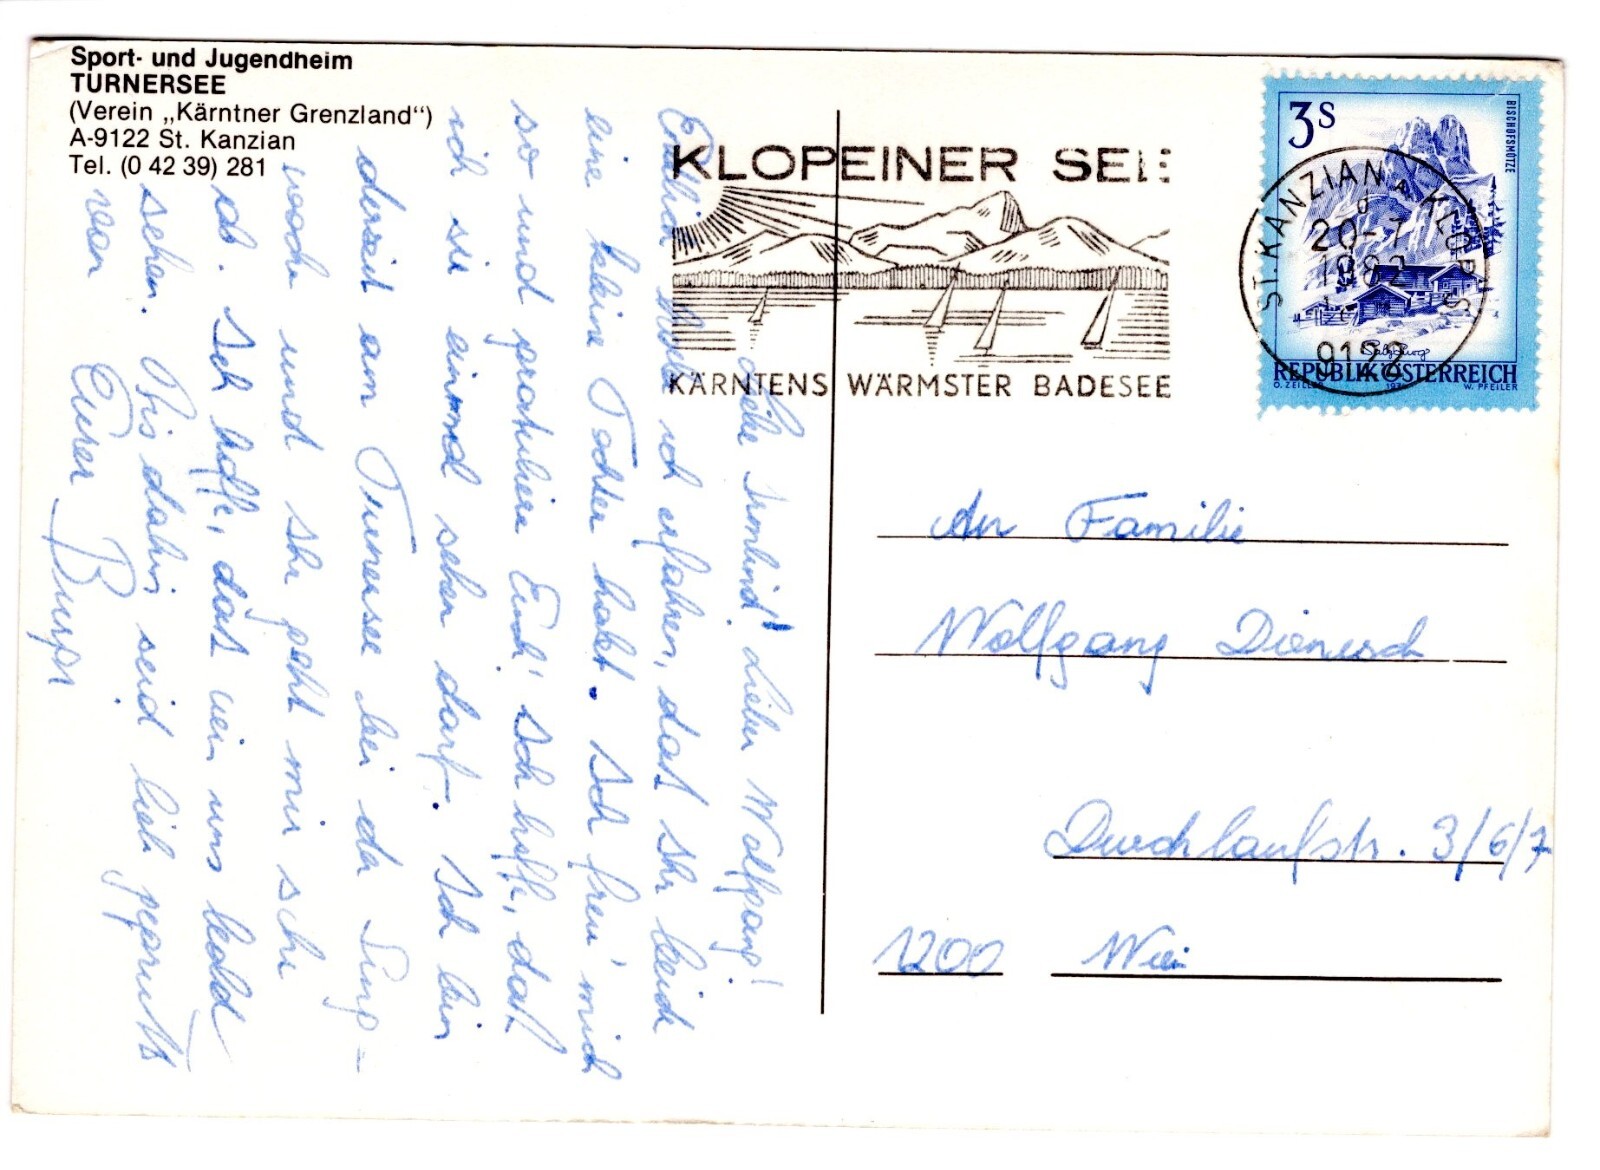 Sport- und Jugendheim
TURNERSEE
(Verein „Kärntner Grenzland“)
A-9122 St. Kanzian
Tel. (0 42 39) 281
Liebe Irmlind! Lieber Wolfgang!
Endlich habe ich erfahren, daß Ihr beide
eine kleine Tochter habt. Ich freu' mich
so und gratuliere Euch! Ich hoffe, daß
ich sie einmal sehen darf. Ich bin
derzeit am Turnersee bei der Sing-
woche und Ihr geht mir sehr
ab. Ich hoffe, daß wir uns bald
sehen. Bis dahin seid lieb gegrüßt
von Eurer
KLOPEINER SEE
KÄRNTENS WÄRMSTER BADESEE
3S
BISCHOFSMÜTZE
Salzburg
REPUBLIK ÖSTERREICH
O. ZEILLER
W. PFEILER
ST. KANZIAN A. KLOP. S.
20-7
1982
9122
An Familie
Wolfgang
Durchlaufstr. 3/6/7
1200 Wien